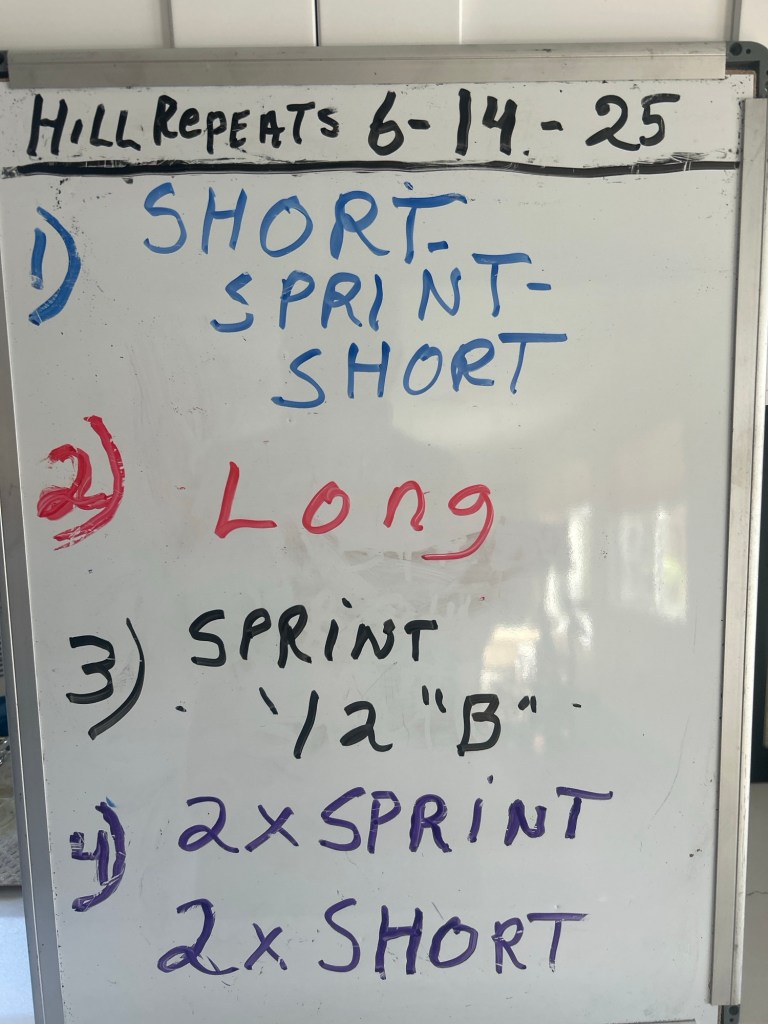 HILL REPEATS 6-14.-25
1) SHORT-
SPRINT-
SHORT
2) Long
3) SPRINT
1/2 "B"
4) 2x SPRINT
2x SHORT